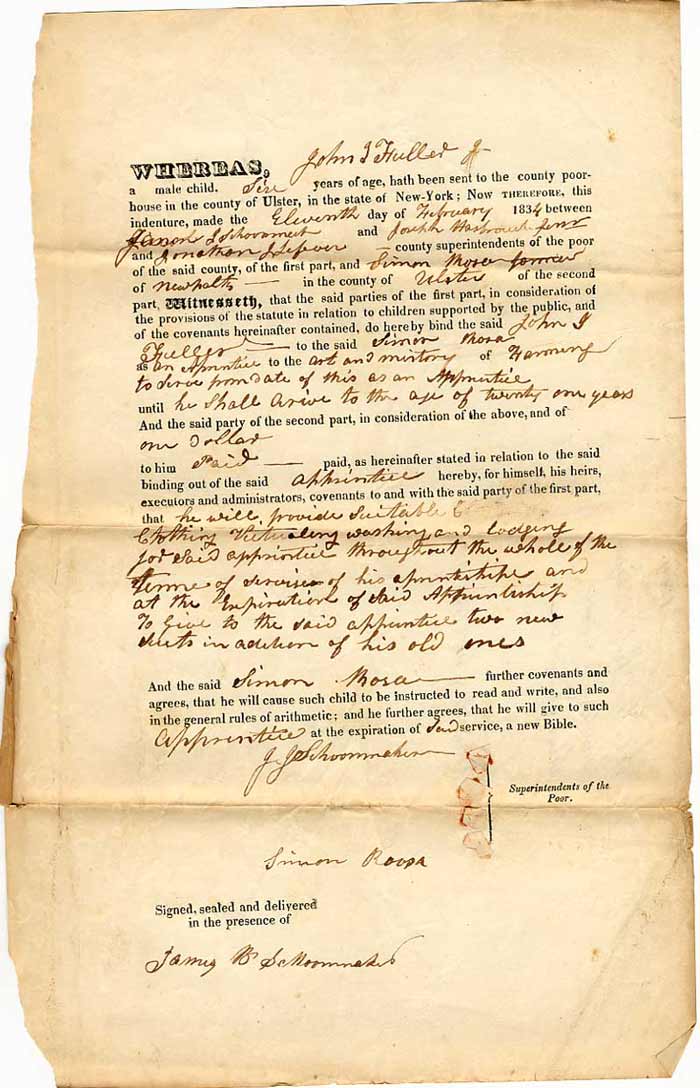 John J Fuller Jr
WHEREAS,
a male child. Six years of age, hath been sent to the county poor-
house in the county of Ulster, in the state of New-York; Now THEREFORE, this
indenture, made the Eleventh day of February 1834 between
and Joseph
and Jonathan J Lefever county superintendents of the poor
of the said county, of the first part, and Simon Rosa
of Newpaltz in the county of Ulster of the second
part, Witnesseth, that the said parties of the first part, in consideration of
the provisions of the statute in relation to children supported by the public, and
of the covenants hereinafter contained, do hereby bind the said John J
Fuller to the said Simon Rosa
as an Aprntice to the art and mistory of Farming
to Serve from date of this as an Apprentice
until he Shall arive to the age of twenty one years
And the said party of the second part, in consideration of the above, and of
one Dollar
to him Paid paid, as hereinafter stated in relation to the said
binding out of the said apprintice hereby, for himself, his heirs,
executors and administrators, covenants to and with the said party of the first part,
that he will provide Suitable
Clothing Victualing washing and lodging
for Said apprintice throughout the whole of the
terme of of his and
at the Expiration of Said
To Give to the said apprintice two new
Suits in adition of his old ones
And the said Simon Rosa further covenants and
agrees, that he will cause such child to be instructed to read and write, and also
in the general rules of arithmetic; and he further agrees, that he will give to such
Apprentice at the expiration of Said service, a new Bible.
J. J Schoonmaker
Superintendents of the
Poor.
Simon Roosa
Signed, sealed and delivered
in the presence of
James W Schoonmaker